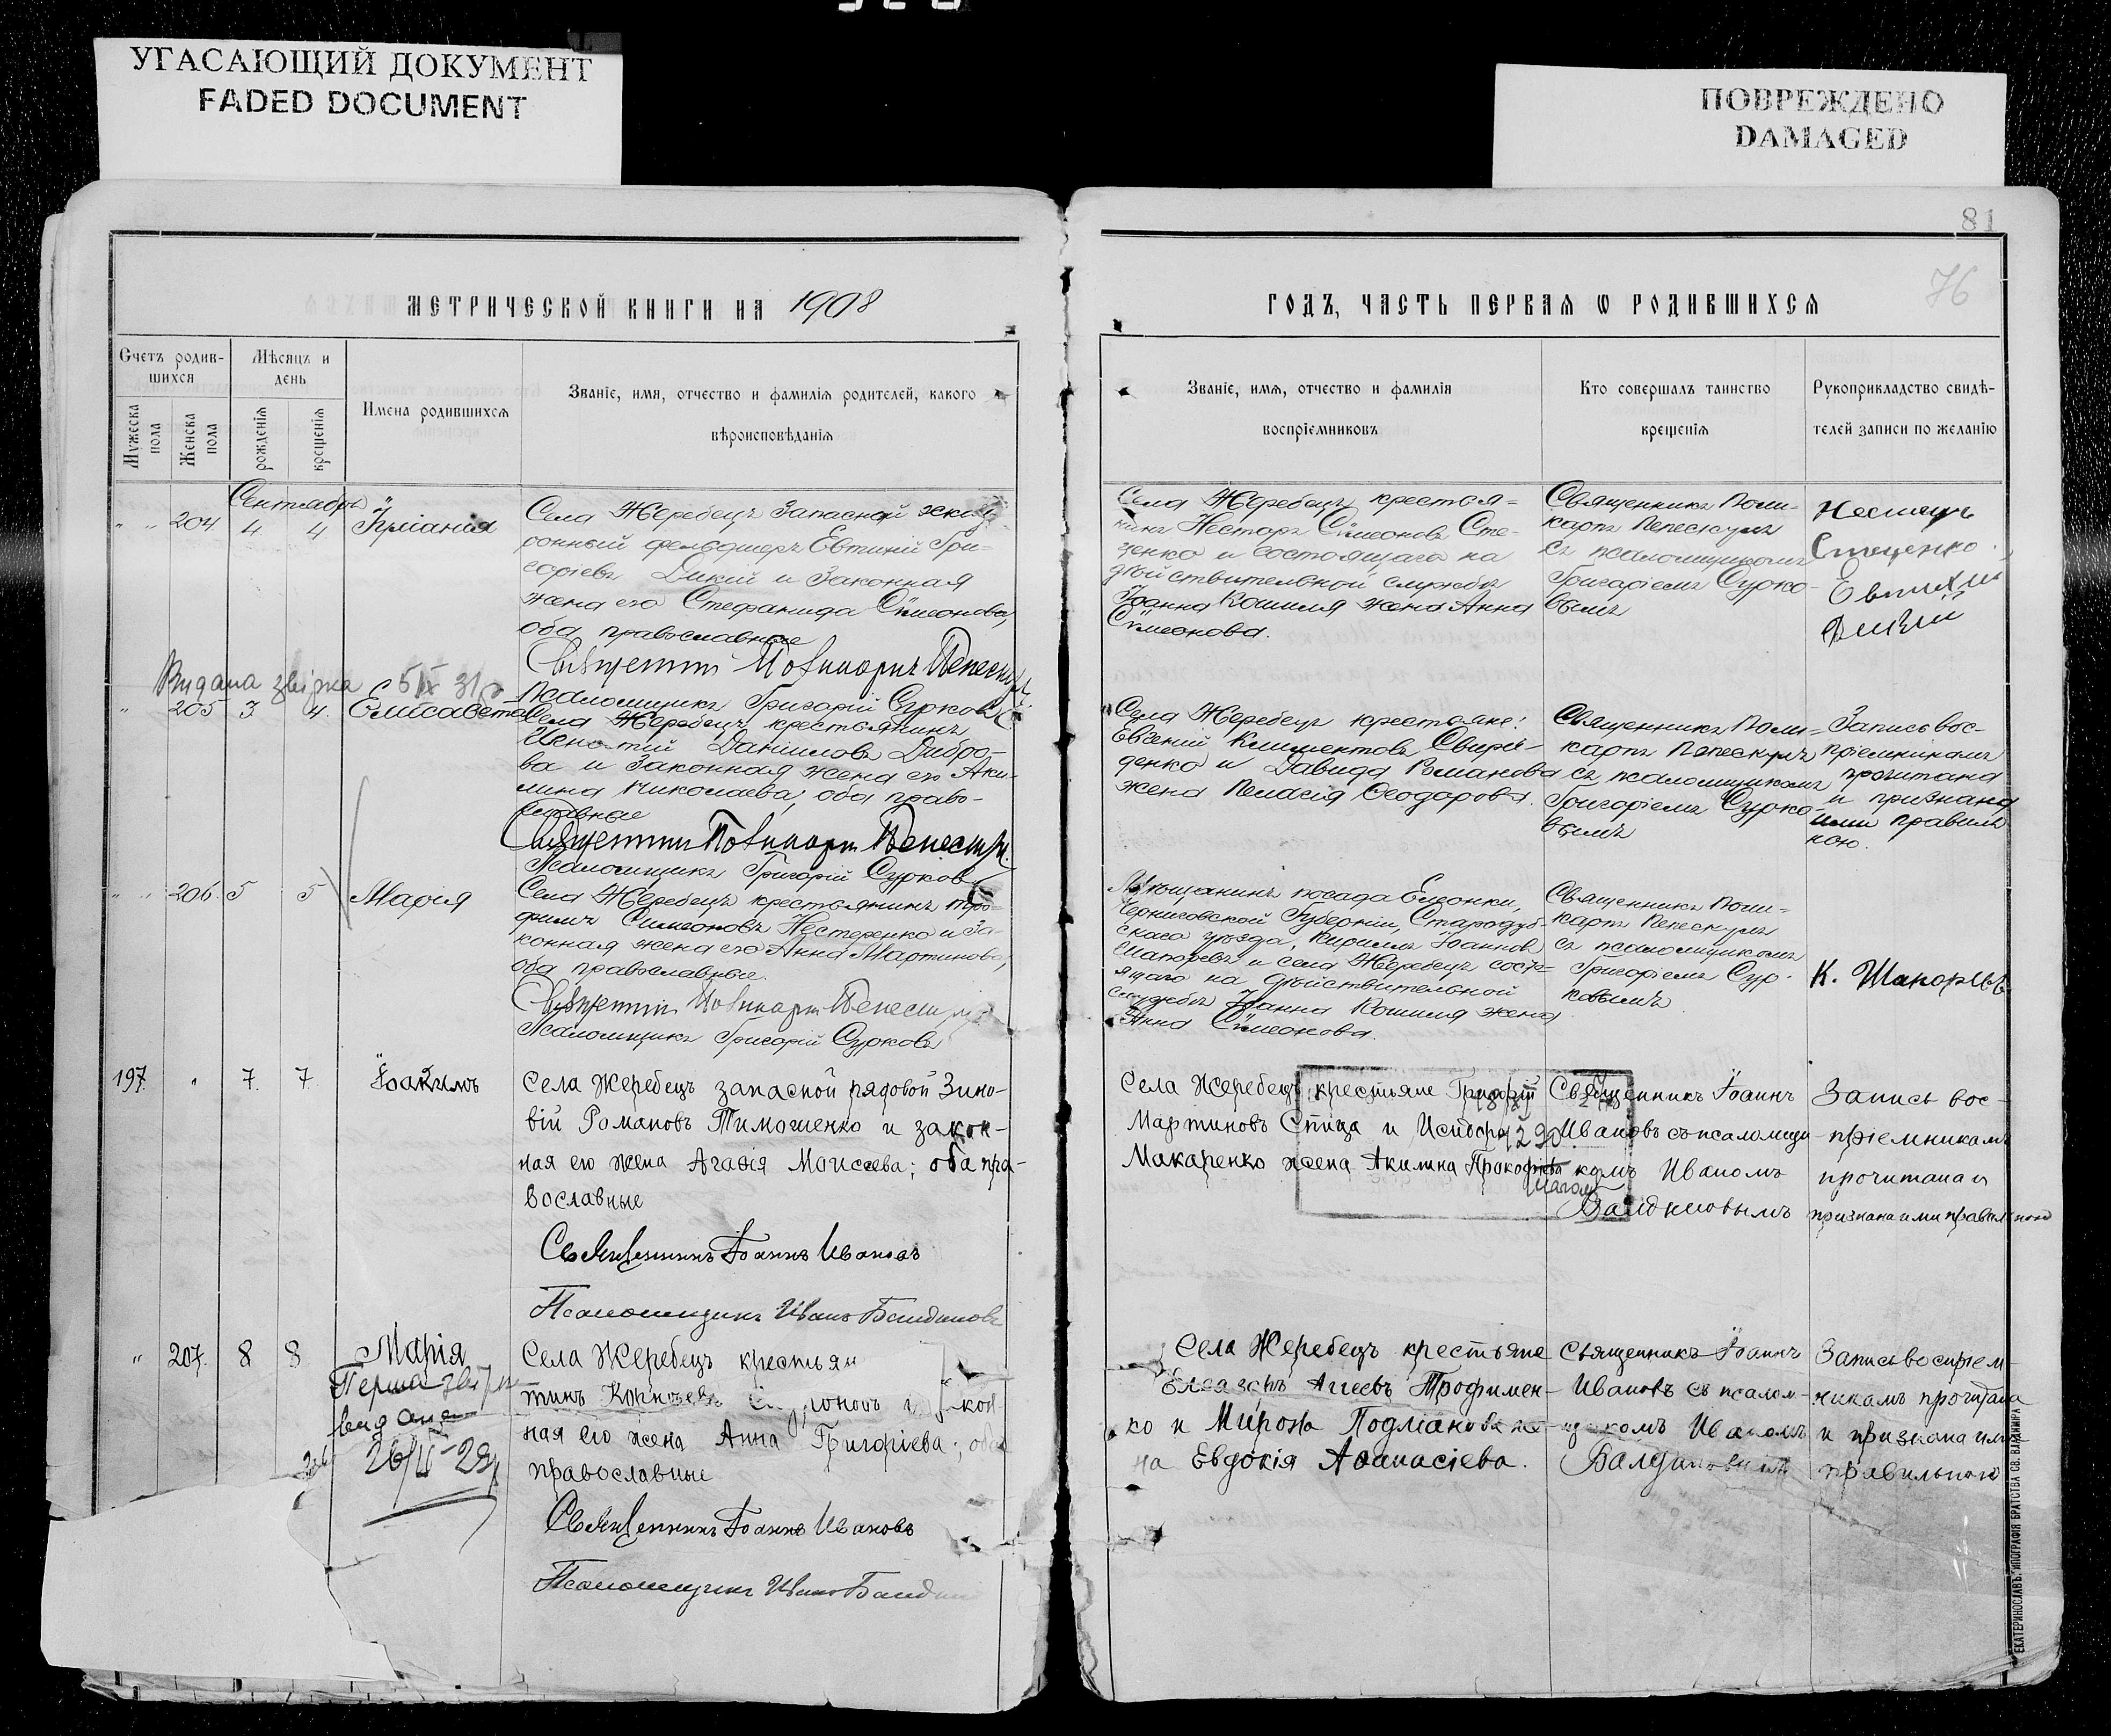 УГАСАЮЩИЙ ДОКУМЕНТ
FADED DOCUMENT
ПОВРЕЖДЕНО
DAMAGED
81
76
МЕТРИЧЕСКОЙ КНИГИ НА 1908
ГОДЪ, ЧАСТЬ ПЕРВАЯ Ѡ РОДИВШИХСЯ
Счетъ родив-
шихся
Мѣсяцъ и
день
Мужеска
пола
Женска
пола
рожденія
крещенія
Имена родившихся
Званіе, имя, отчество и фамилія родителей, какого
вѣроисповѣданія
Званіе, имя, отчество и фамилія
воспріемниковъ
Кто совершалъ таинство
крещенія
Рукоприкладство свидѣ-
телей записи по желанію
Сентябрь
204 4 4
Села Жеребецъ Запасной эскад-
ронный фельдшеръ Евтихій Гри-
горіевъ Дикій и Законная
жена его Стефанида Сѵмеонова,
оба православные
Псаломщикъ Григорій Сурковъ
Села Жеребецъ крестья-
нинъ Несторъ Сѵмеоновъ Сте-
ценко и состоящаго на
дѣйствительной службѣ
Іоанна Кошиля жена Анна
Сѵмеонова.
Священникъ Поли-
карпъ Пепескулъ
съ псаломщикомъ
Григоріемъ Сурко-
вымъ
Стеценко.
Евтихий
Дикий
Видана звірка 5/IX 31р
205 3 4 Елисавета
Села Жеребецъ крестьянинъ
Игнатій Даніиловъ Дибро-
ва и Законная жена его Аки-
лина Николаева, оба право-
славные
Псаломщикъ Григорій Сурковъ
Села Жеребецъ крестьяне:
Евгеній Климентовъ Свири-
денко и Давида Романова
жена Пелагія Ѳеодорова.
Священникъ Поли-
карпъ Пепескулъ
съ псаломщикомъ
Григоріемъ Сурко-
вымъ
Запись вос-
пріемникамъ
прочитана
и признана
ими правиль-
ною.
206 5 5 Марія
Села Жеребецъ крестьянинъ Тро-
фимъ Симеоновъ Нестеренко и За-
конная жена его Анна Мартинова,
оба православные.
Псаломщикъ Григорій Сурковъ
Мѣщанинъ посада Елионки,
Черниговской Губерніи, Стародуб-
скаго уѣзда, Кириллъ Іоанновъ
Шапоревъ и села Жеребецъ состо-
ящаго на дѣйствительной
службѣ Іоанна Кошиля жена
Анна Сѵмеонова.
Священникъ Поли-
карпъ Пепескулъ
съ псаломщикомъ
Григоріемъ Сур-
ковымъ
К. Шапоревъ
197. " 7. 7 Іоакимъ
Села Жеребецъ запасной рядовой Зино-
вій Романовъ Тимошенко и закон-
ная его жена Агаѳія Моисеева; оба пра-
вославные
Священникъ Іоаннъ Ивановъ
Псаломщикъ Иванъ Балдиновъ
Села Жеребецъ крестьяне Григорій
Мартиновъ Спица и Исидора
Макаренко жена Акилина Прокофіева
Священникъ Іоаннъ
Ивановъ съ псаломщи-
комъ Иваномъ
Балдиновымъ
Запись вос-
пріемникамъ
прочитана и
признана ими правильною
" 207. 8 8 Марія
Перша
видана
26/II-29
Села Жеребецъ крестьян
ная его жена Анна Григоріева; оба
православные
Священникъ Іоаннъ Ивановъ
Псаломщикъ Иванъ
Села Жеребецъ крестьяне
Елеазаръ Аггеевъ Трофимен-
ко и Мирона Подлианова же-
на Евдокія Аѳанасіева.
Священникъ Іоаннъ
Ивановъ съ псалом-
щикомъ Иваномъ
Балдиновымъ
Запись воспріем-
никамъ прочитана
и признана ими
правильною
ЕКАТЕРИНОСЛАВЪ. ТИПОГРАФІЯ БРАТСТВА СВ. ВЛАДИМІРА